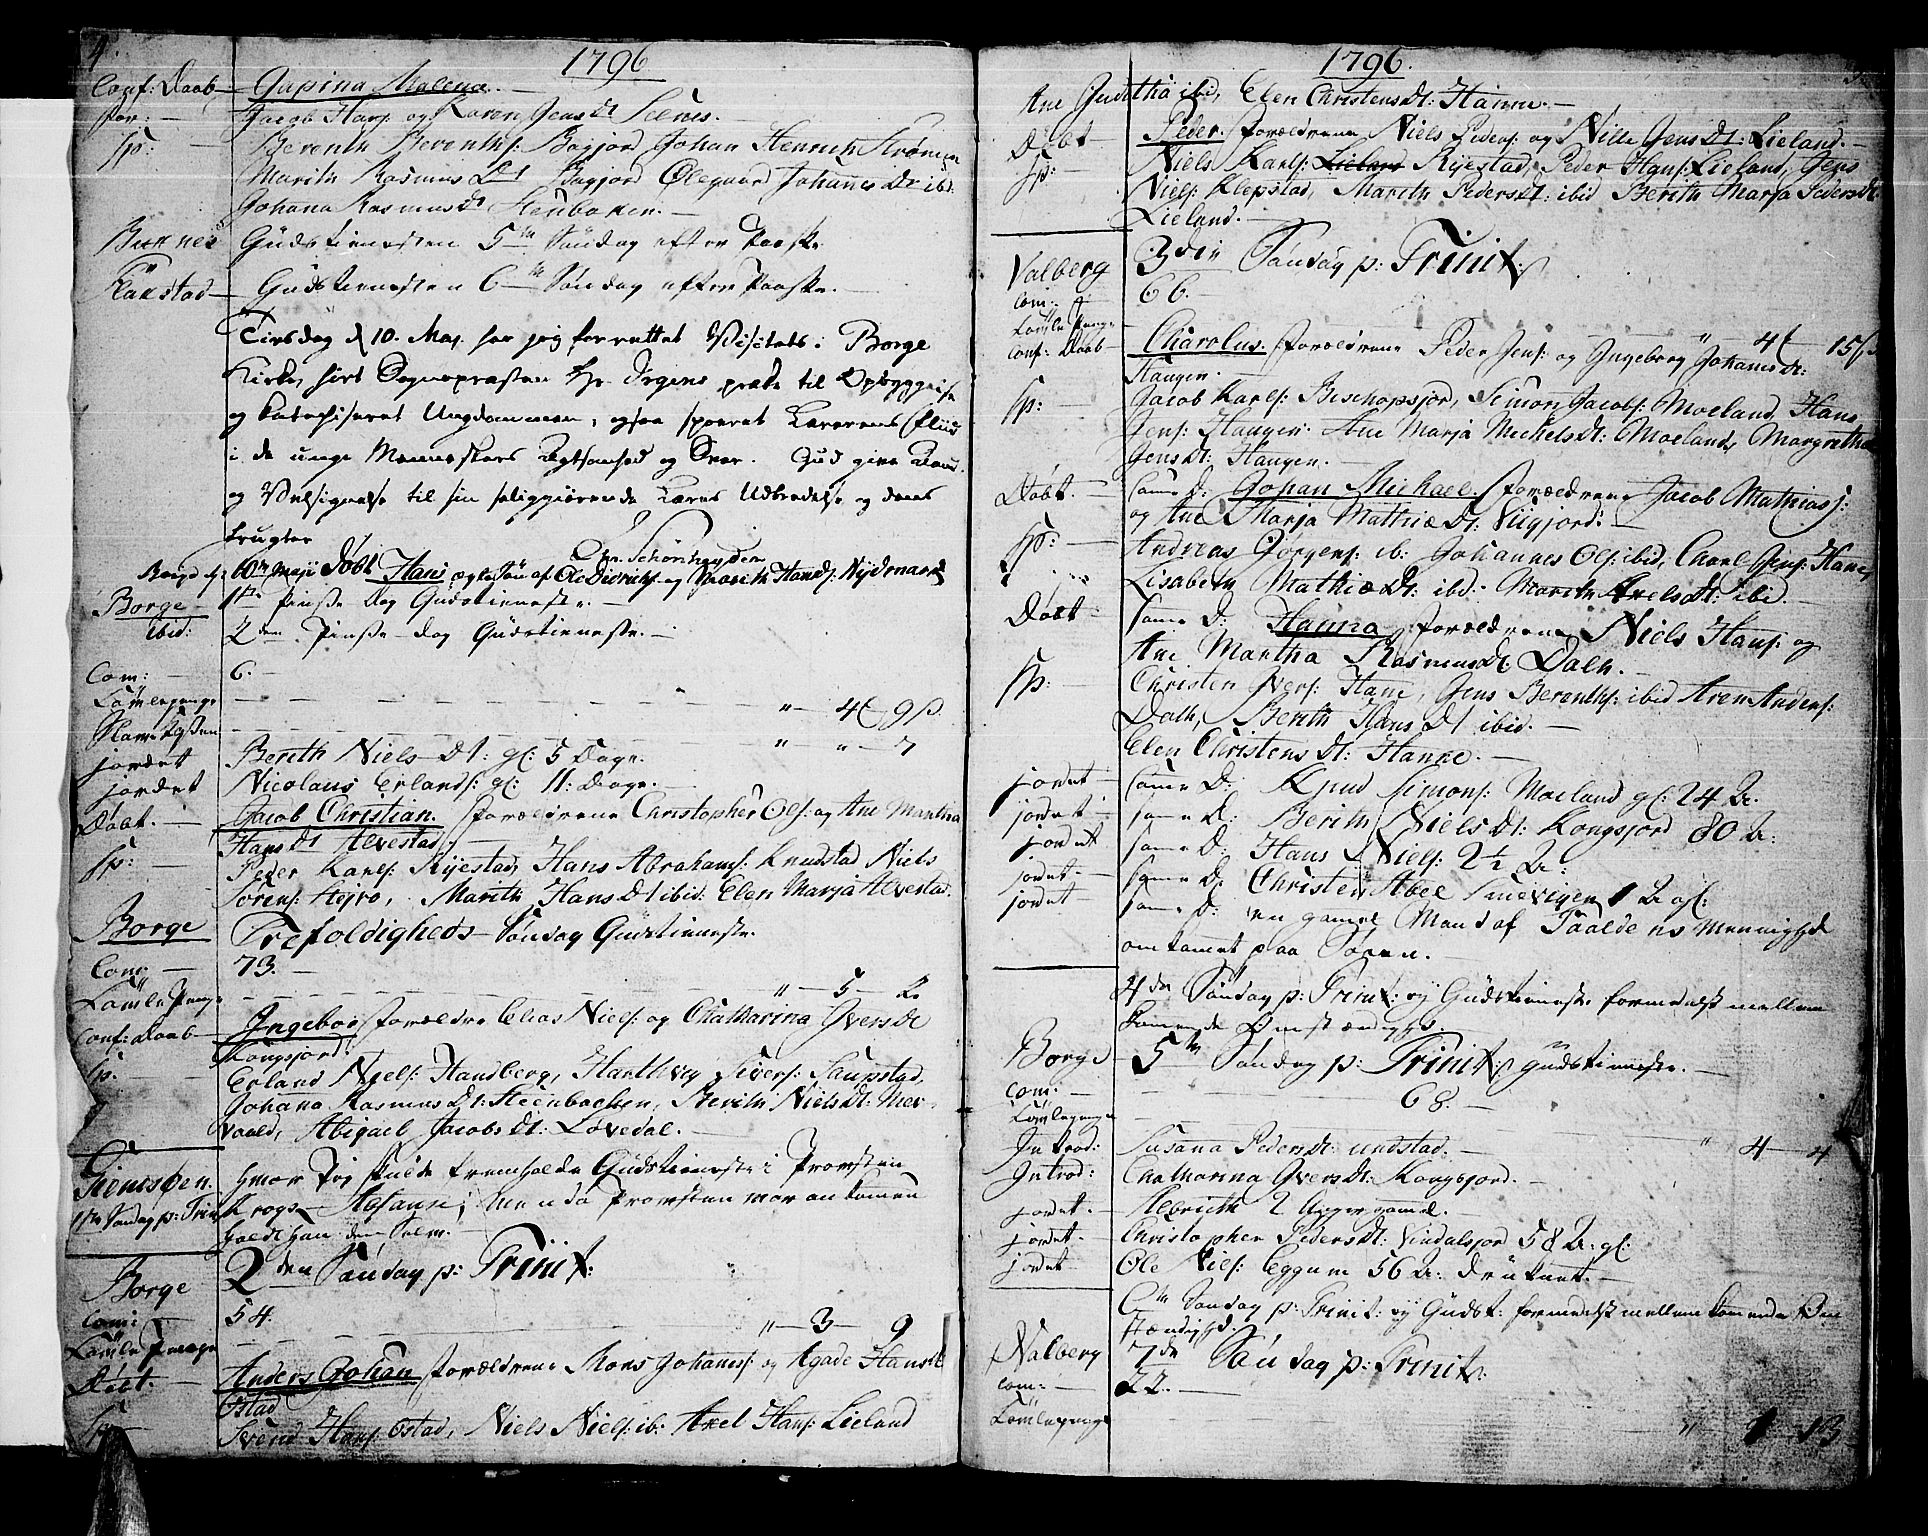 4.
1796
Conf: Daab Japina Malena.
For: — Jacob Hans: og Karen JensDt Leenes.
Sp: — Berenth Berenths: Bøgjord Johan Henrich Strømen
Marith Rasmus Dt Bøgjord Ølegaard Johannes Dt ibid:
Johana RasmusDt Steenbaken. —
Buxnes Gudstienesten 5te Søndag efter Paaske
Flakstad — Gudstienesten 6te Søndag efter Paaske. —
Tirsdag d 10. Maj. har jeg forrettet Visitats i Borge
Kirke, hørt Sognepræsten Hr. Irgens præke til Opbyggelse
og katechiseret Ungdommen, ogsaa sporet Lærerens Fliid
i de unge Menneskers Agtsomhed og Svar. Gud give Naade
og Velsignelse til sin saliggiørende Læres Udbredelse og dens
Frugter
Borge d: 10de Maji Døbt Hans ægte Søn af Ole Didrichs: og Marith Hansd: Nydmark
Borge — 1ste Pinse Dag Gudstieneste. —
ibid: 2den Pinse-dag Gudstieneste. —
Com: — 6. —
Tavlepenge — " — 4 — 9 ß.
— " — " — 7
jordet Berith Niels Dt: gl: 5 Dage.
jordet Nicolaus Erlands: gl: 11: Dage.
Døbt. — Jacob Christian. Forældrene Christopher Ols: og Ane Martha
HansDt Alvestad. —
Sp: — Peder Karls: Ryestad, Hans Abrahams: Knudstad Niels
Sørens: Hejro, Marith HansDt ibid: Elen Marja Alvestad.
Borge Trefoldigheds-Søndag Gudstieneste.
Com: — 73. —
Tavle Penge — " — 5 — 2
Conf: Daab — Ingebor Forældre Elias Niels: og Chatharina IversDt
Kongsjord.
Sp. — Erland Niels: Handberg, Harthvig Sivers: Saupstad,
Johana Rasmus Dt: Steenbachen, Berith NielsDt: Mer-
vaald, Abigael Jacobs Dt: Løvedal. —
Giemsøen. Hvor jeg skulde fremholde Gudstieneste i Provsten
1ste Søndag p: Trin: Krogs Afsavn; men da Provsten var ankomen
holdt han den Selv.
Borge 2den Søndag p: Trinit:
Com: — 54.
Tavle Penge — " — 3 — 9
Døbt. — Anders Johan Forældrene Mons Johanes: og Agade HansDt
Østad
Sp: — Svend Hans: Østad, Niels Niels: ib: Axel Hans: Lieland
1796.
Ane Juditha ibid, Elen ChristensDt: Hanne. —
Døbt — Peder. Forældrene Niels Peders: og Nille JensDt: Lieland. —
Sp: — Niels Karls: Lieland Ryestad, Peder Hans: Lieland, Jens
Niels: Klepstad, Marith PedersDt: ibid Berith Marja PedersDt
Lieland. —
Valberg 3die Søndag p: Trinit:
Com: — 66. —
Tavle Penge — " — 4 — 15ß
Conf: Daab — Charolus. Forældrene Peder Jens: og Ingeborg JohannsDt:
Haugen. —
Sp: — Jacob Karls: Bischopsjor, Simon Jacobs: Moeland, Hans
Jens: Haugen. Ane Marja MichelsDt: Moeland, Margrethe
JensDt: Haugen. —
Døbt. — Same D: Johan Michael. Forældrene Jacob Mathias:
og Ane Marja MathiæDt: Viigjord. —
Sp: — Andreas Jørgens: ib: Johannes Ols: ibid, Charl Jens: Hane,
Lisabeth MathiæDt: ibid: Marith AxelsDt: ibid. —
Døbt: — Same D: Hanna Forældrene Niels Hans: og
Ane Martha RasmusDt: Dalh. —
Sp: — Christen Ivers: Hane, Jens Berenths: ibid Aren Anders:
Dalh, Berith Hans Dt ibid. —
Elen ChristensDt: Hanne. —
jordet — Same D: Knud Simons: Moeland gl: 24 Ar.
jordet — Same D: Berith NielsDt: Kongsjord 80 Ar:
jordet Same D: Hans Niels: 2½ Ar:
jordet — Same D: Christen Abel 1 Ar gl:
jordet — Same D: en gamel Mand af Taaldens Meenighed
omkomet paa Søen. —
4de Søndag p: Trinit: ey Gudstieneste formedelst mellem
komende Omstændighed. —
Borge — 5te Søndag p: Trinit: Gudstieneste. —
Com: — 68. —
Tavlepenge — " 4 — 4
Introd: Susana PedersDt: undstad. —
Introd: Chatharina IversDt: Kongsjord. —
jordet. — Albrieth 2 Uger gamel. —
jordet. — Christopher PedersDt: Vindalsjord 58 Ar: gl:
jordet — Ole Niels: Eggum 56 Ar: druknet. —
6te Søndag p: Trinit: ey Gudst: formedelst mellem komende Om
stændighed.
Valberg 7de Søndag p: Trinit:
Com: — 22. —
Tavlepenge — " — 1 — 13